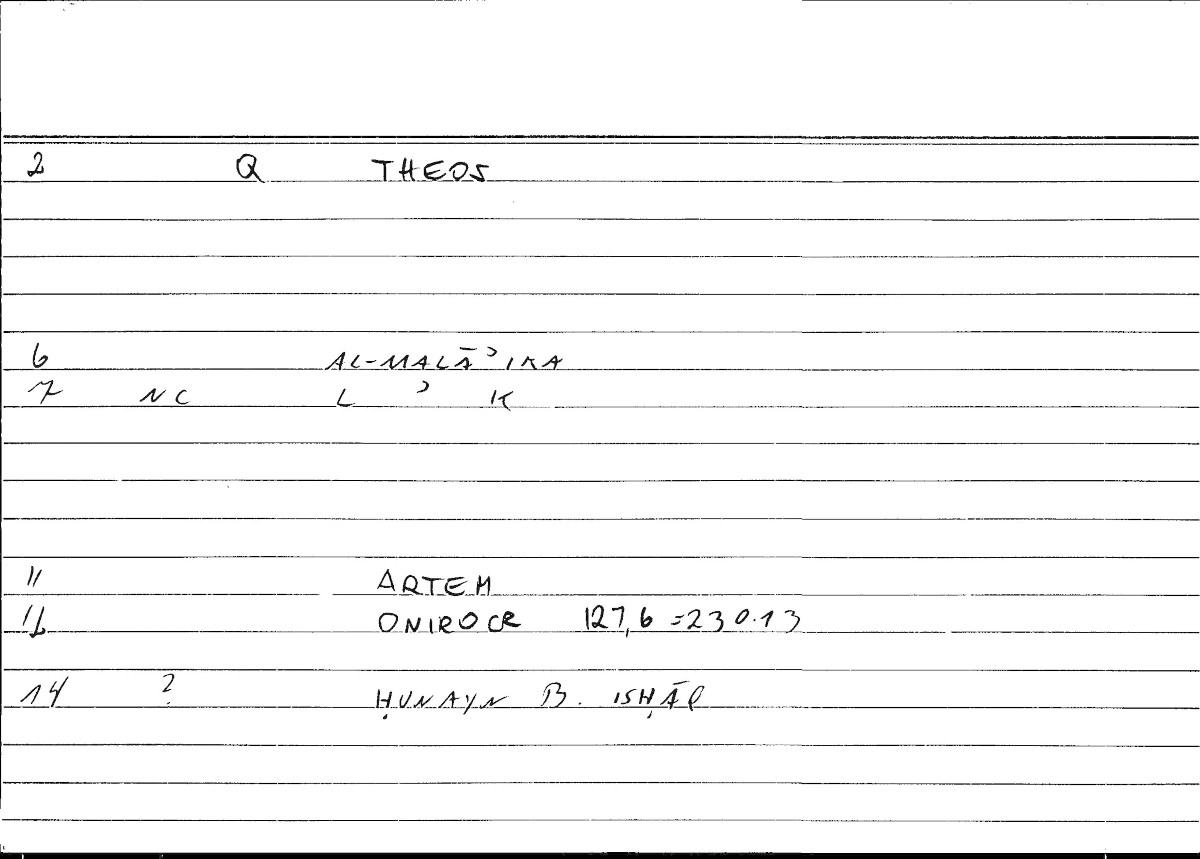 2 Q THEOS
6 AL-MALĀʾIKA
7 NC L ʾ K
11 ARTEM
12 ONIROCR 127,6 = 230.13
14 ? ḤUNAYN B. ISḤĀQ